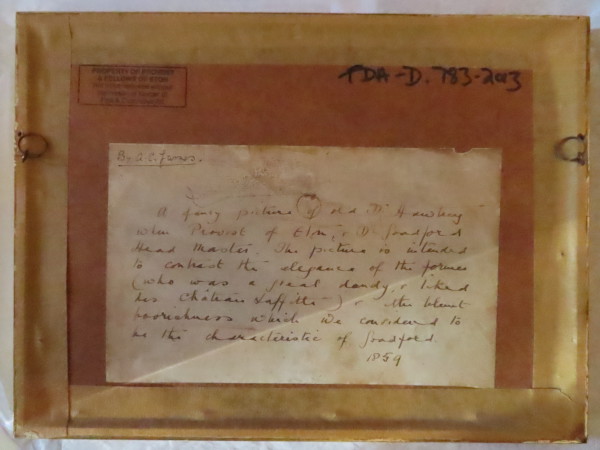 PROPERTY OF PROVOST
& FELLOWS OF ETON
FDA-D. 783-2013
By A. C.
A fancy picture of old Dr Hawtrey
when Provost of Eton, & Dr Goodford
Head Master. The picture is intended
to contrast the elegance of the former
(who was a great dandy, & liked
his Château Laffitte) & the blunt
boorishness which we considered to
be the characteristic of Goodford.
1859